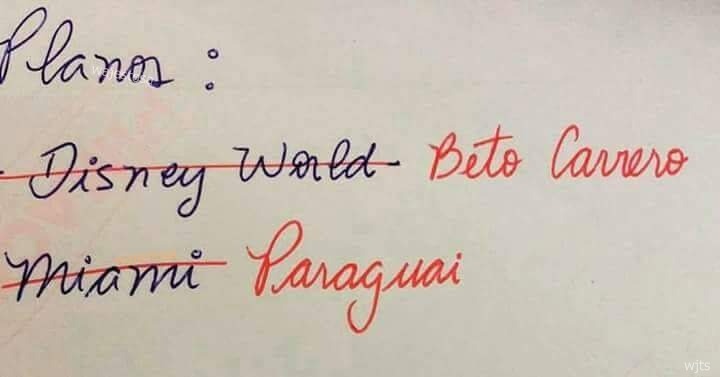 Planos :
- Disney World - Beto Carrero
Miami Paraguai
wjts